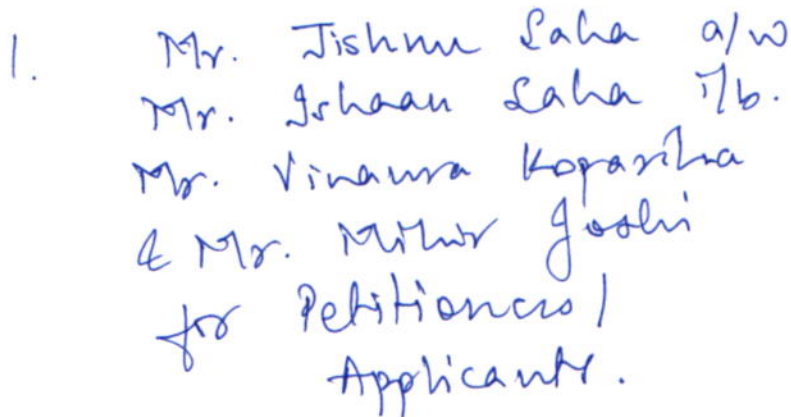 1. Mr. Jishnu Saha a/w
Mr. Ishaan Saha i/b.
Mr. Vinamra Kopariha
& Mr. Mihir Joshi
for Petitioners/
Applicants.